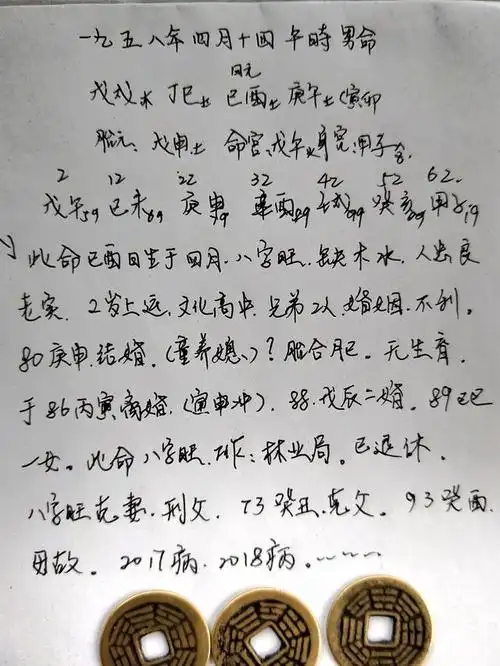 一九五八年四月十四午時男命
日元
戊戌木 丁巳土 己酉土 庚午土 (寅卯
胎元:戊申土 命宫:戊午火 身宫:甲子金.
2 12 22 32 42 52 62.
戊午59 己未69 庚申 辛酉89 壬戌99 癸亥09 甲子19
此命己酉日生于四月.八字旺.缺木水.人忠良
老实. 2岁上运.文化高中.兄弟2人.婚姻.不利。
80庚申.结婚.(童养媳)?胎合月巳.无生育.
于86丙寅离婚.(寅申冲).88.戊辰二婚.89己巳
一女。此命八字旺.工作:林业局。已退休.
八字旺克妻.刑父.73癸丑.克父.93癸酉.
母故。2017病.2018病.